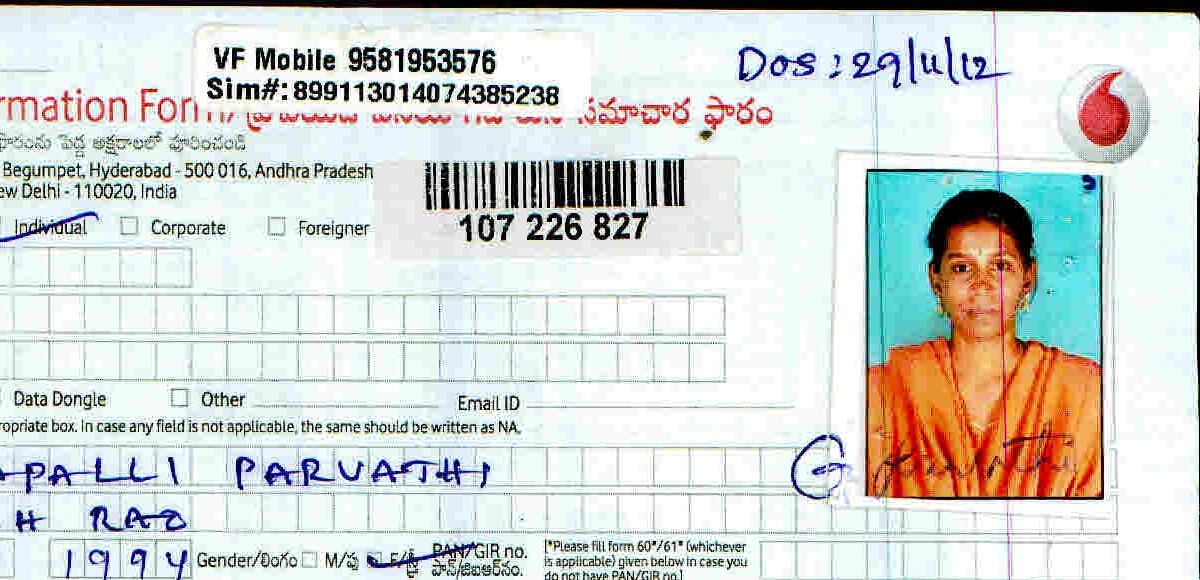 VF Mobile 9581953576
Sim#: 899113014074385238
DOS : 29/11/12
rmation Form/ సమాచార ఫారం
ఫారంను పెద్ద అక్షరాలలో పూరించండి
Begumpet, Hyderabad - 500 016, Andhra Pradesh
ew Delhi - 110020, India
Individual Corporate Foreigner
107 226 827
Data Dongle Other Email ID
ropriate box. In case any field is not applicable, the same should be written as NA.
APALLI PARVATHI
H RAO
1994 Gender/లింగం M/పు F/స్త్రీ PAN/GIR no.
పాన్/జిఐఆర్ నం.
[*Please fill form 60*/61* (whichever
is applicable) given below in case you
do not have PAN/GIR no.]